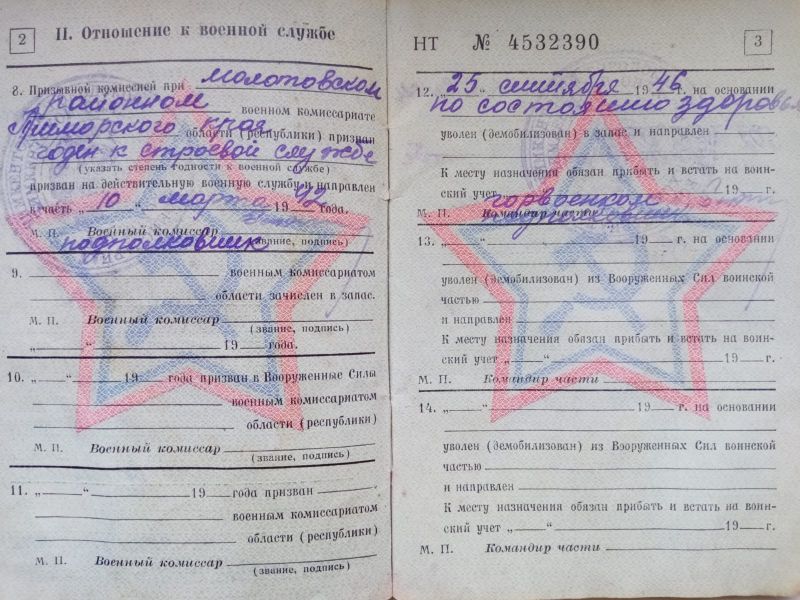 2
II. Отношение к военной службе
8. Призывной комиссией при Молотовском
районном военном комиссариате
Приморского края области (республики) признан
годен к строевой службе
(указать степень годности к военной службе)
призван на действительную военную службу и направлен
в часть „ 10 “ марта 1942 года.
М. П. Военный комиссар
подполковник (звание, подпись)
9. военным комиссариатом
области зачислен в запас.
М. П. Военный комиссар
(звание, подпись)
„ “ 19 года.
10. „ “ 19 года призван в Вооруженные Силы
военным комиссариатом
области (республики)
М. П. Военный комиссар
(звание, подпись)
11. „ “ 19 года призван
военным комиссариатом
области (республики)
М. П. Военный комиссар
(звание, подпись)
НТ № 4532390
3
12. „ 25 “ сентября 1946 г. на основании
по состоянию здоровья
уволен (демобилизован) в запас и направлен
К месту назначения обязан прибыть и встать на воин-
ский учет 19 г.
горвоенком
М. П. Командир части подполковник
13. „ “ 19 г. на основании
уволен (демобилизован) из Вооруженных Сил воинской
частью
и направлен
К месту назначения обязан прибыть и встать на воин-
ский учет „ “ 19 г.
М. П. Командир части
14. „ “ 19 г. на основании
уволен (демобилизован) из Вооруженных Сил воинской
частью
и направлен
К месту назначения обязан прибыть и встать на воин-
ский учет „ “ 19 г.
М. П. Командир части